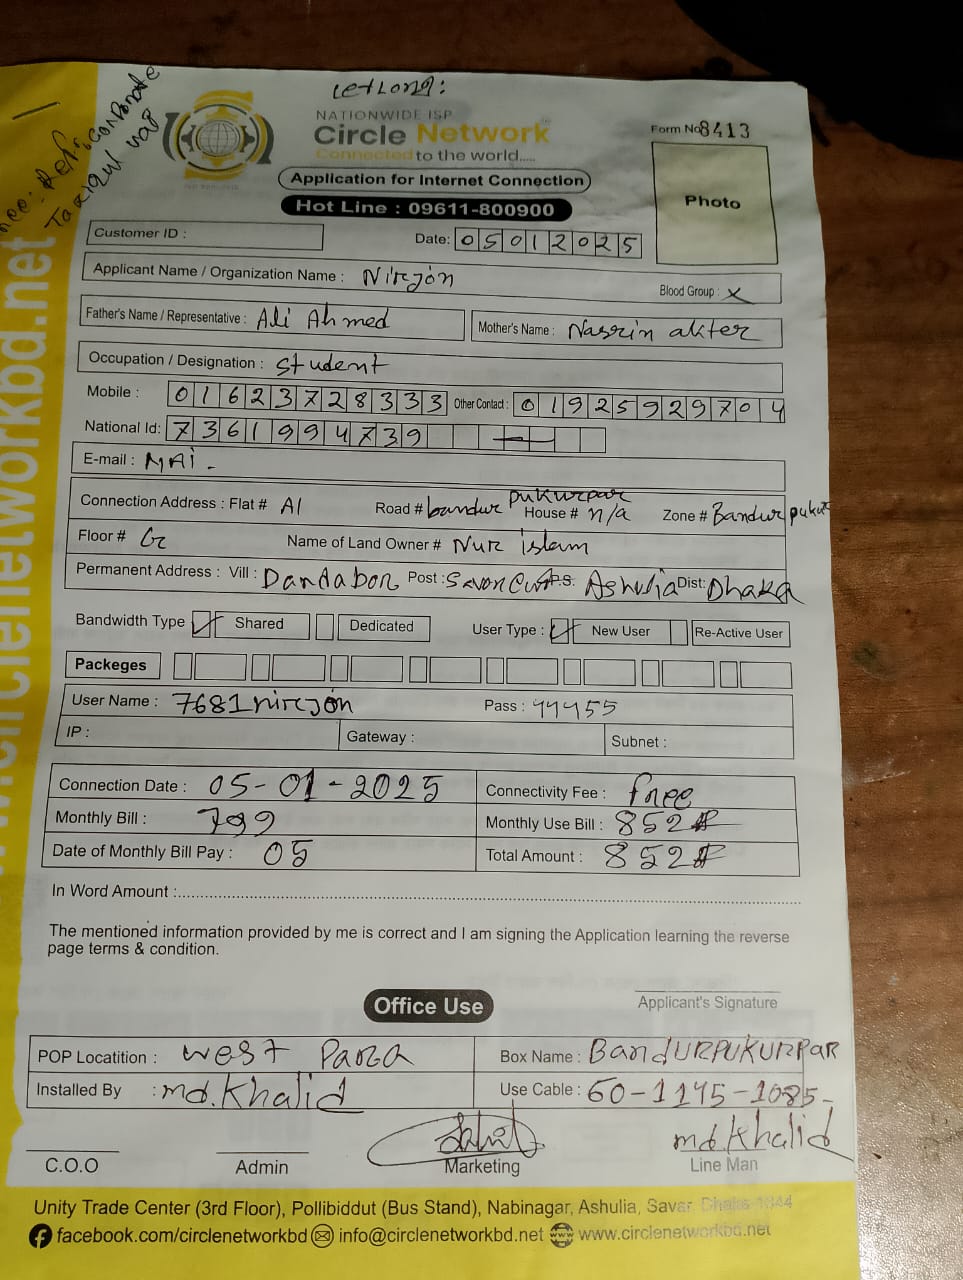 LetLong:
Ref: Corporate
Tariqul vag
NATIONWIDE ISP
Circle Network
Connected to the world.....
Form No 8413
Application for Internet Connection
Photo
Hot Line : 09611-800900
Customer ID :
Date: 05012025
Applicant Name / Organization Name : Nirjon
Blood Group : X
Father's Name / Representative : Ali Ahmed Mother's Name : Nasrin akter
Occupation / Designation : Student
Mobile : 01623728333 Other Contact : 01925929704
National Id: 7361994739
E-mail : NAi -
Connection Address : Flat # A1 Road # bandur pukurpar House # n/a Zone # Bandur pukur
Floor # G Name of Land Owner # Nur islam
Permanent Address : Vill : Dandabor Post : Savar Cant P.S: Ashulia Dist: Dhaka
Bandwidth Type Shared Dedicated User Type : New User Re-Active User
Packeges
User Name : 7681nirjon Pass : 44455
IP : Gateway : Subnet :
Connection Date : 05-01-2025 Connectivity Fee : free
Monthly Bill : 799 Monthly Use Bill : 852
Date of Monthly Bill Pay : 05 Total Amount : 852
In Word Amount :
The mentioned information provided by me is correct and I am signing the Application learning the reverse
page terms & condition.
Applicant's Signature
Office Use
POP Locatition : West Para Box Name : BandURPUKURPAR
Installed By : md.Khalid Use Cable : 60-1145-1085-
md.Khalid
C.O.O Admin Marketing Line Man
Unity Trade Center (3rd Floor), Pollibiddut (Bus Stand), Nabinagar, Ashulia, Savar Dhaka-1344
facebook.com/circlenetworkbd info@circlenetworkbd.net www.circlenetworkbd.net
www.circlenetworkbd.net